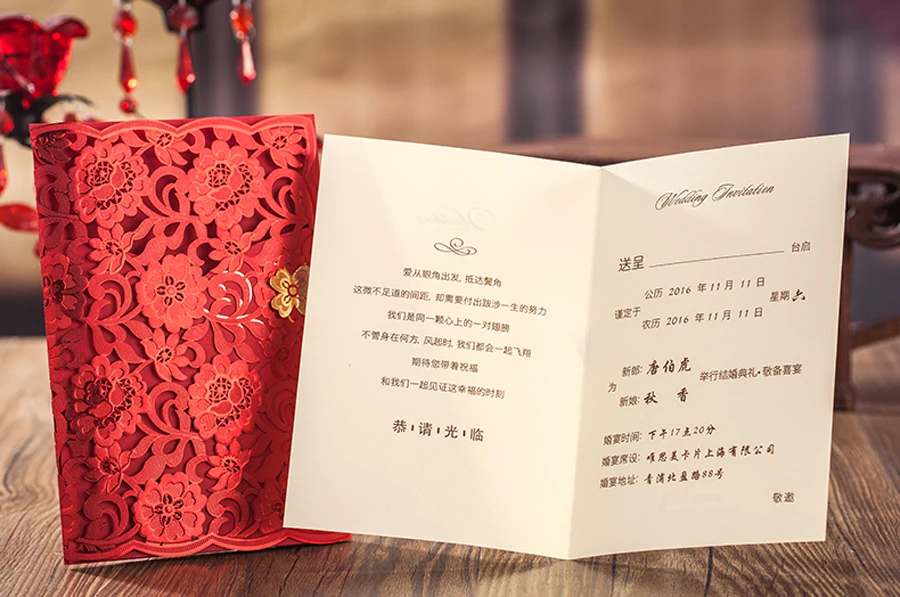 爱从眼角出发, 抵达鬓角
这微不足道的间距, 却需要付出跋涉一生的努力
我们是同一颗心上的一对翅膀
不管身在何方, 风起时, 我们都会一起飞翔
期待您带着祝福
和我们一起见证这幸福的时刻
恭 请 光 临
Wedding Invitation
送呈 台启
谨定于
公历 2016 年 11 月 11 日
农历 2016 年 11 月 11 日
星期六
为
新郎: 唐伯虎
新娘: 秋 香
举行结婚典礼·敬备喜宴
婚宴时间: 下午17点20分
婚宴席设: 唯思美卡片上海有限公司
婚宴地址: 青浦北盈路88号
敬邀